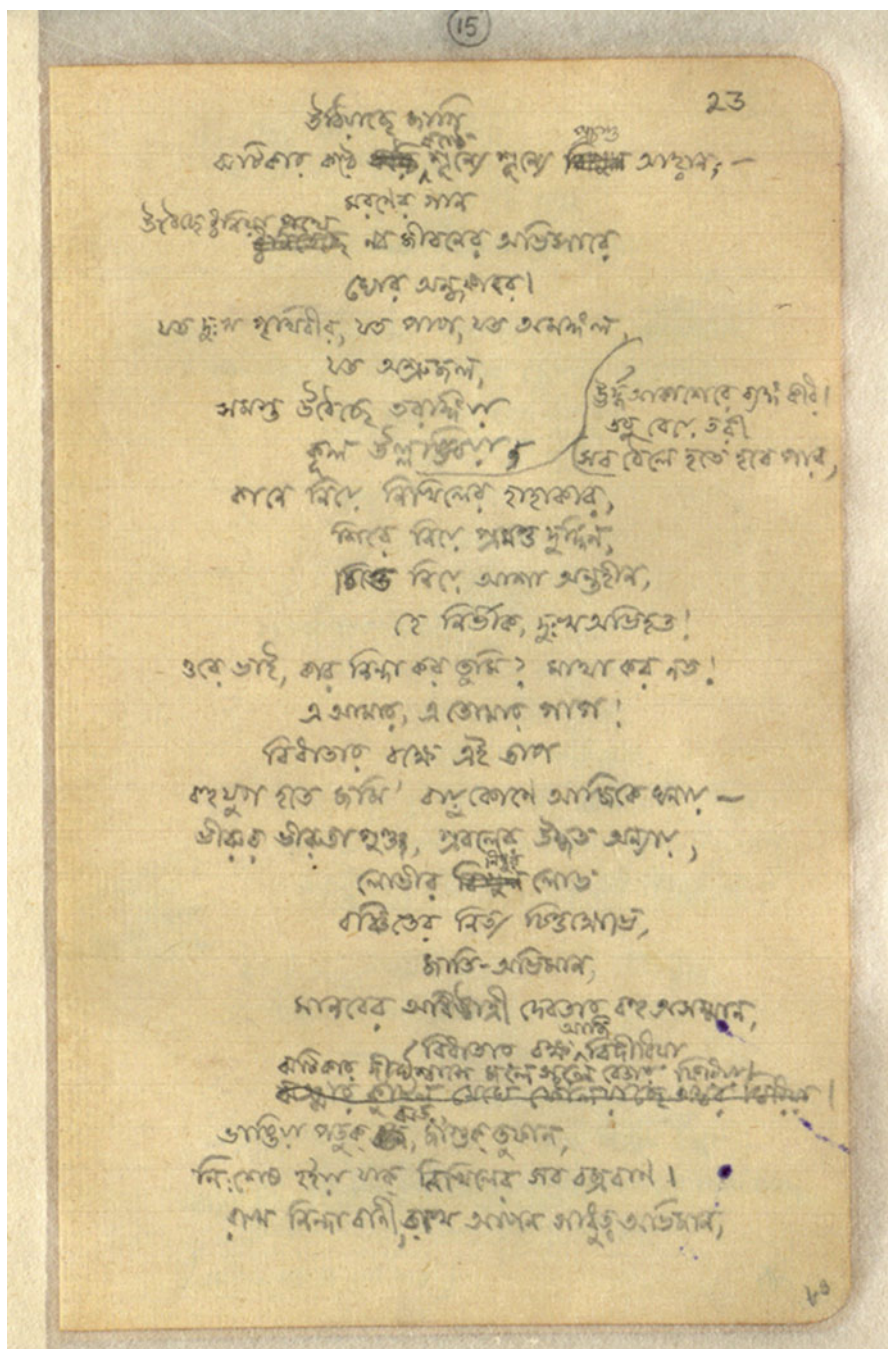 15
23
উঠিয়াছে জাগি
ঝটিকার কণ্ঠে শূন্যে শূন্যে প্রচণ্ড আহ্বান, —
মরণের গান
উঠেছে ধ্বনিয়া পথে নব জীবনের অভিসারে
ঘোর অন্ধকারে।
যত দুঃখ পৃথিবীর, যত পাপ, যত অমঙ্গল,
যত অশ্রুজল,
সমস্ত উঠেছে তরঙ্গিয়া
কূল উল্লঙ্ঘিয়া
ঊর্দ্ধ আকাশেরে ব্যঙ্গ করি।
তবু বেয়ে তরী
সব ঠেলে হতে হবে পার,
কানে নিয়ে নিখিলের হাহাকার,
শিরে নিয়ে প্রমত্ত দুর্দ্দিন,
চিত্তে নিয়ে আশা অন্তহীন,
হে নির্ভীক, দুঃখ অভিহত!
ওরে ভাই, কার নিন্দা কর তুমি? মাথা কর নত!
এ আমার, এ তোমার পাপ!
বিধাতার বক্ষে এই তাপ
বহুযুগ হতে জমি' বায়ুকোণে আজিকে ঘনায় —
ভীরুর ভীরুতাপুঞ্জ, প্রবলের উদ্ধত অন্যায়,
লোভীর নিষ্ঠুর লোভ
বঞ্চিতের নিত্য চিত্তক্ষোভ,
জাতি-অভিমান,
মানবের অধিষ্ঠাত্রী দেবতার বহু অসম্মান,
বিধাতার বক্ষ আজি বিদীরিয়া
ঝটিকার দীর্ঘশ্বাসে জলে স্থলে বেড়ায় ফিরিয়া।
ভাঙিয়া পড়ুক ঝড়, জাগুক তুফান,
নিঃশেষ হইয়া যাক্ নিখিলের সব বজ্রবাণ।
রাখ নিন্দাবাণী, রাখ আপন সাধুত্ব অভিমান,